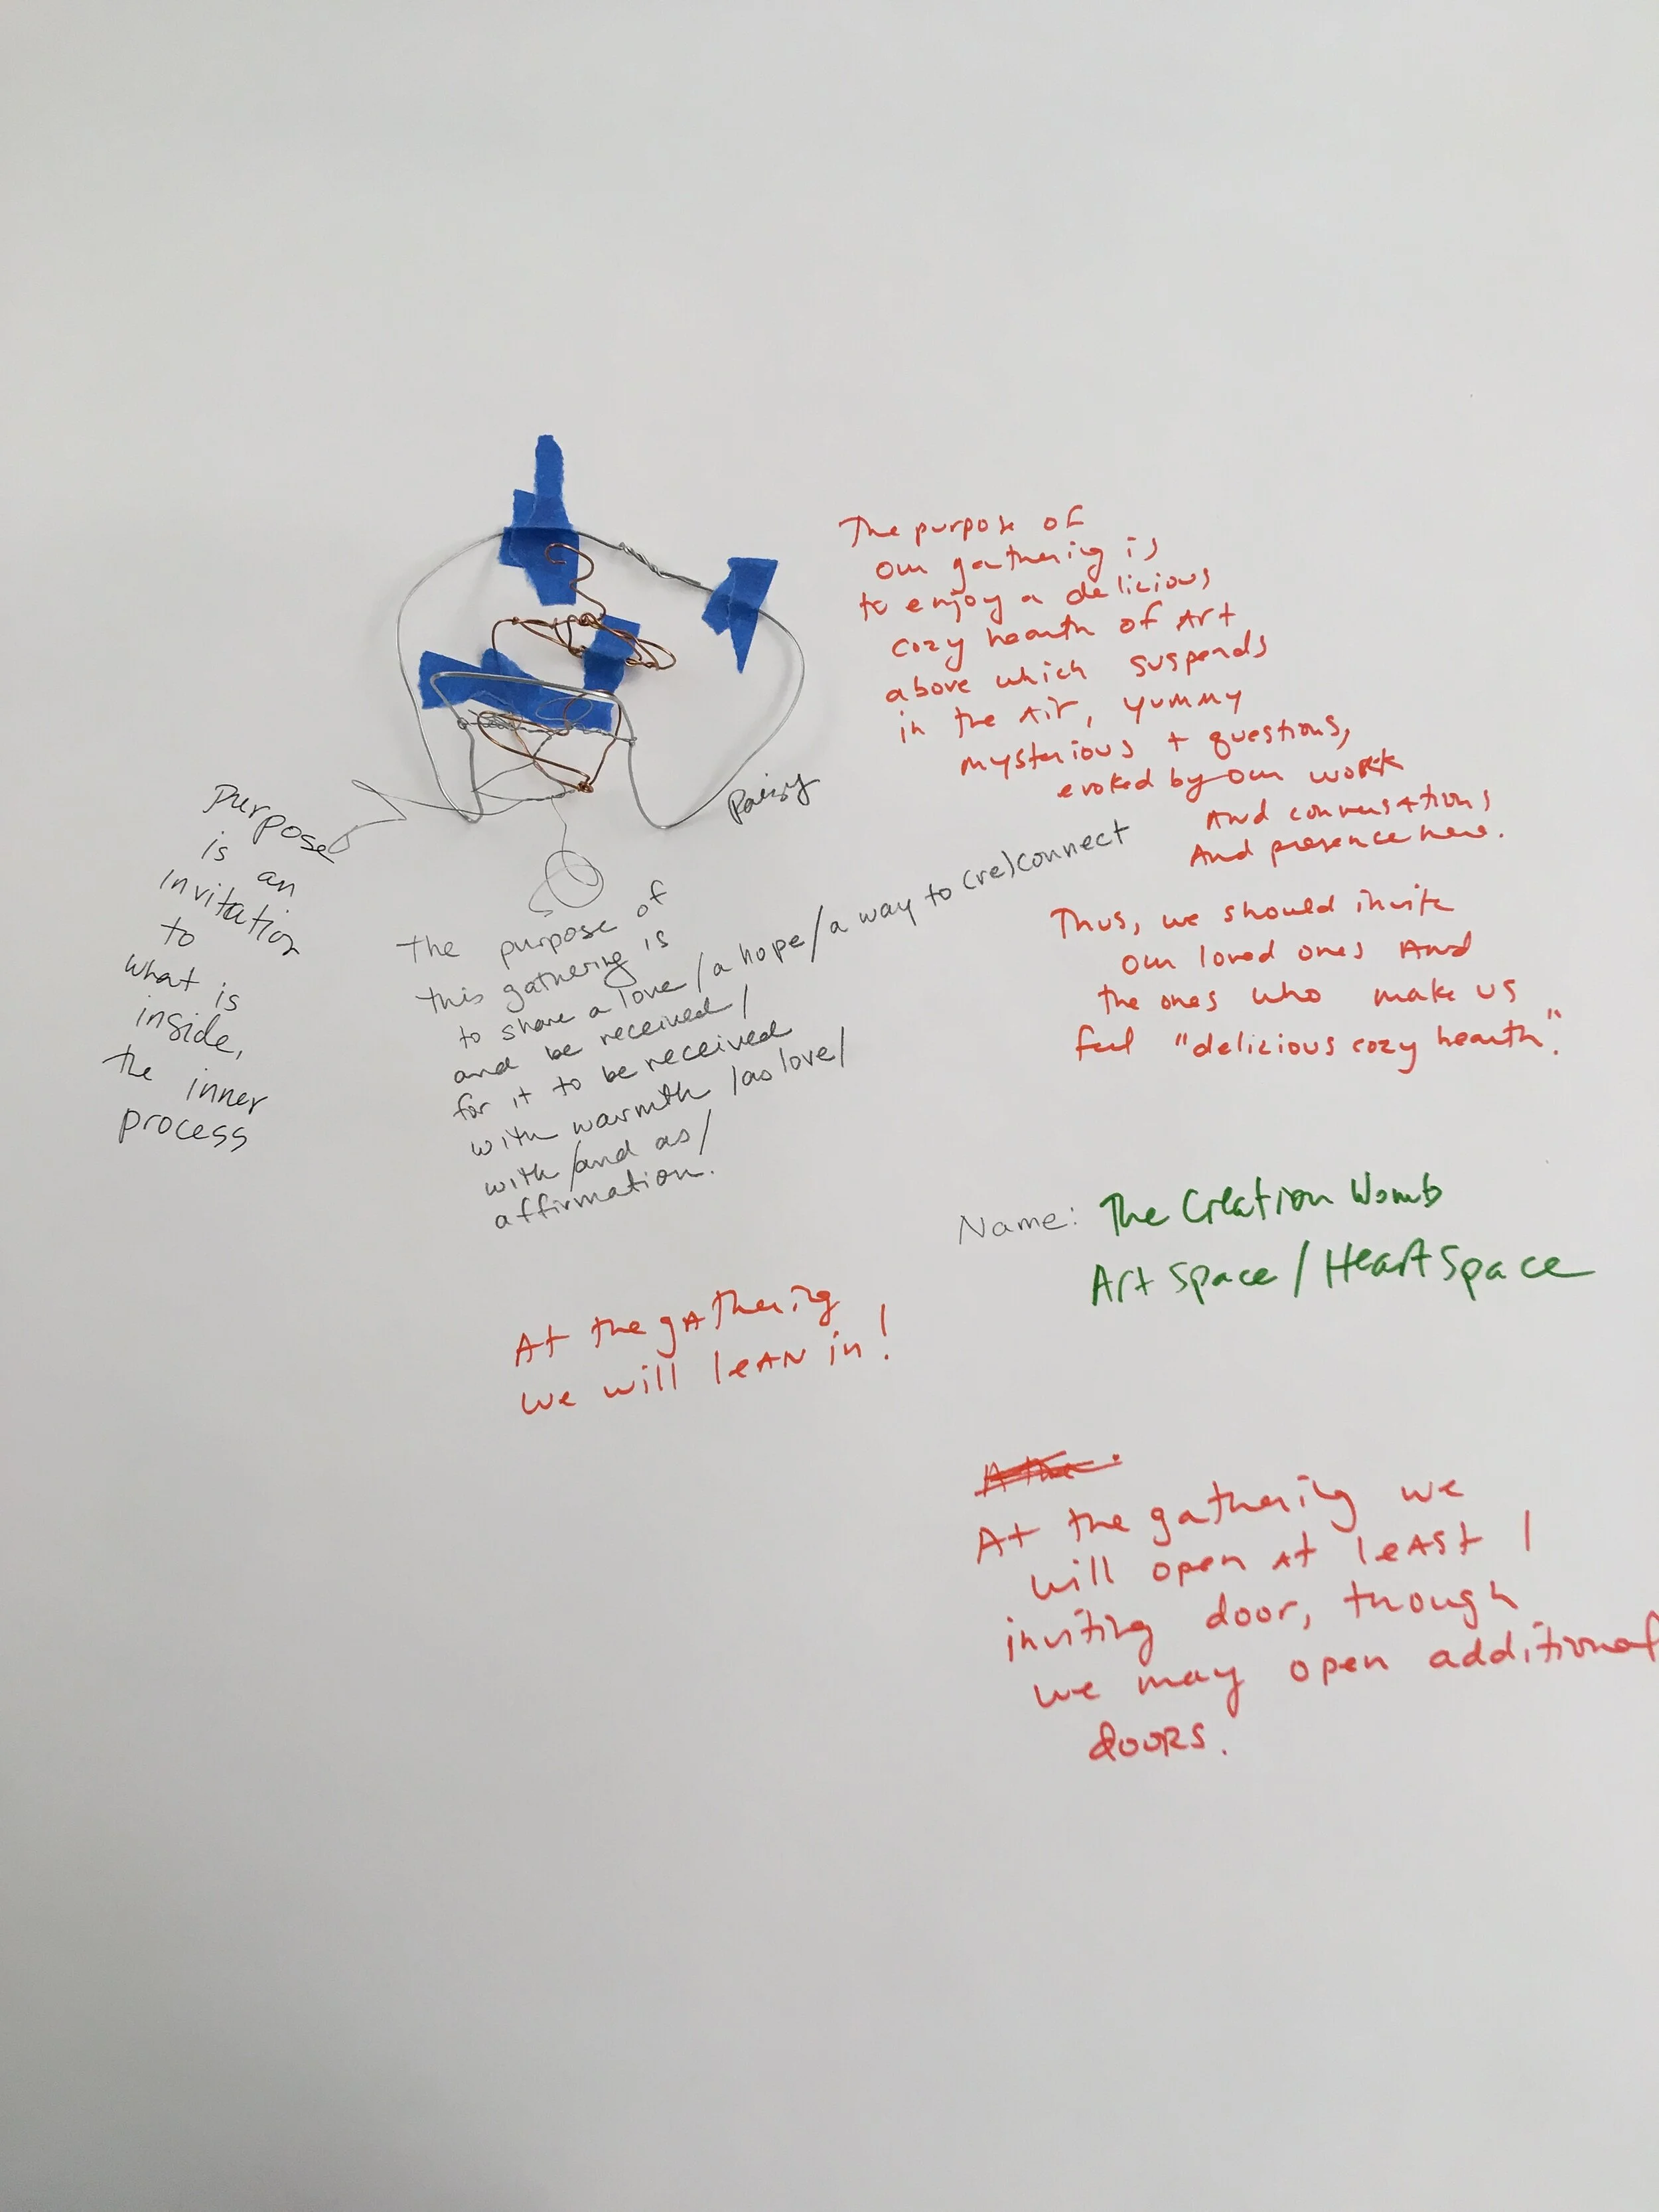 Paisy
Purpose
is an
invitation
to
what is
inside,
the inner
process
The purpose of
this gathering is
to share a love/a hope/a way to (re)connect
and be received/
for it to be received
with warmth/as love/
with/and as/
affirmation.
The purpose of
our gathering is
to enjoy a delicious
cozy hearth of Art
above which suspends
in the Air, yummy
mysterious + questions,
evoked by our work
And conversations
And presence here.
Thus, we should invite
our loved ones And
the ones who make us
feel "delicious cozy hearth".
Name: The Creation Womb
Art Space/Heart Space
At the gAthering
we will leAN in!
At the gathering we
will open At leAst 1
inviting door, though
we may open additional
doors.